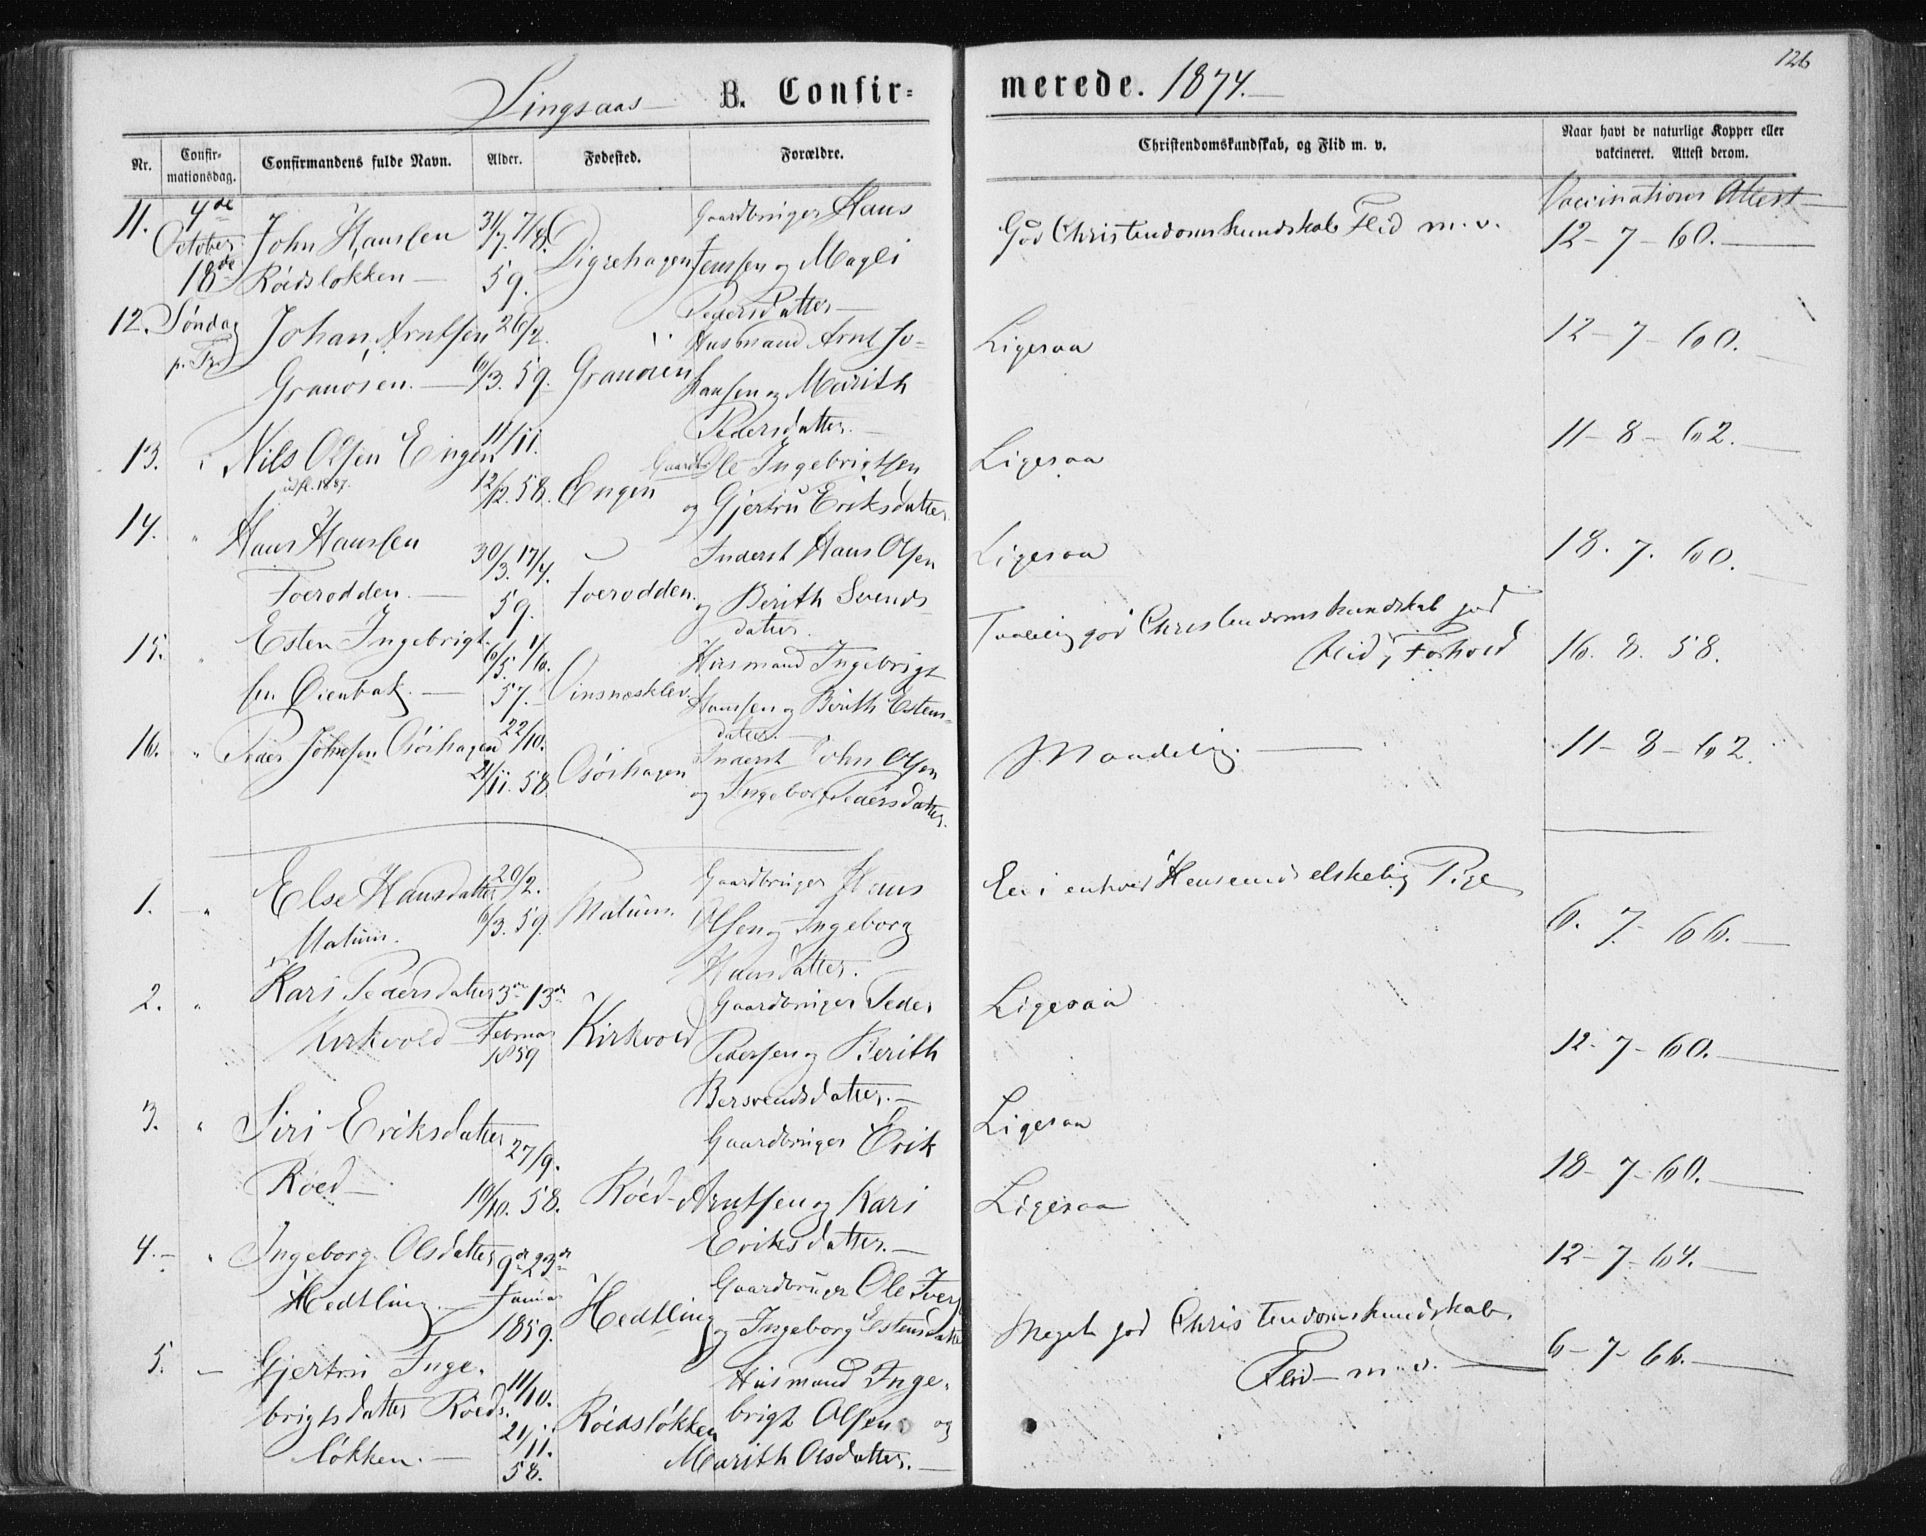 126
Singsaas B. Confir=
merede. 1874.
Nr. Confir-mationsdag. Confirmandens fulde Navn. Alder. Fødested. Forældre.
Christendomskundskab, og Flid m. v. Naar havt de naturlige Kopper eller vakcineret. Attest derom.
Vaccinations Attest
11. 4de October John Hansen 31/7. 7/8. Digrehagen Gaardbruger Hans
18de Røedsløkken 59. Jensen og Magli
Pedersdatter
God Christendomskundskab Flid m. v. 12-7-60.
12. Søndag p. Tr. Johan Arntsen 26/2. Husmand Arnt Jo-
Granøsen. 6/3. 59. Granøsen hansen og Marith
Pedersdatter.
Ligesaa 12-7-60.
13. Nils Olsen Engen 11/11. Gaardbr Ole Ingebrigtsen
udfl. 1887. 12/12. 58. Engen og Gjertru Eriksdatter
Ligesaa 11-8-62.
14. " Hans Hansen 30/3. 17/4. Inderst Hans Olsen
Foerodden. 59. Foerodden. og Berith Svends-
datter.
Ligesaa 18. 7. 60.
15. " Esten Ingebrigt- 6/5. 1/6. Husmand Ingebrigt
sen Øienbak. 57. Vinsnesklev. Hansen og Berith Estens-
datter.
Taalelig god Christendomskundskab god
Flid, Forhold 16. 8. 58.
16. " Peder Johnsen Osøihagen 22/10. Inderst John Olsen
21/11. 58 Osøihagen og Ingeborg Pedersdatter.
Maadelig. 11-8-62.
1. " Else Hansdatter 20/2. Gaardbruger Hans
Matum. 6/3. 59. Matum. Olsen og Ingeborg
Hansdatter.
En i enhver Henseende elskelig Pige 6. 7. 66.
2. " Kari Pedersdatter 3de 13de Gaardbruger Peder
Kirkvold Februar 1859 Kirkvold Pedersen og Berith
Bersvendsdatter.
Ligesaa 12-7-60.
3. " Siri Eriksdatter 27/9. Gaardbruger Erik
Røed 10/10. 58. Røed Arntsen og Kari
Eriksdatter.
Ligesaa 18-7-60.
4. " Ingeborg Olsdatter 9de 23de Gaardbruger Ole Ivers
Hedtling. Januar 1859. Hedtling og Ingeborg Estensdatter
Ligesaa 12-7-64.
5. Gjertru Inge- 11/10. Husmand Inge-
brigtsdatter Røeds- 21/11. Røedsløkken brigt Olsen og
løkken. 58. Marith Olsdatter.
Meget god Christendomskundskab,
Flid m. v. 6-7-66.